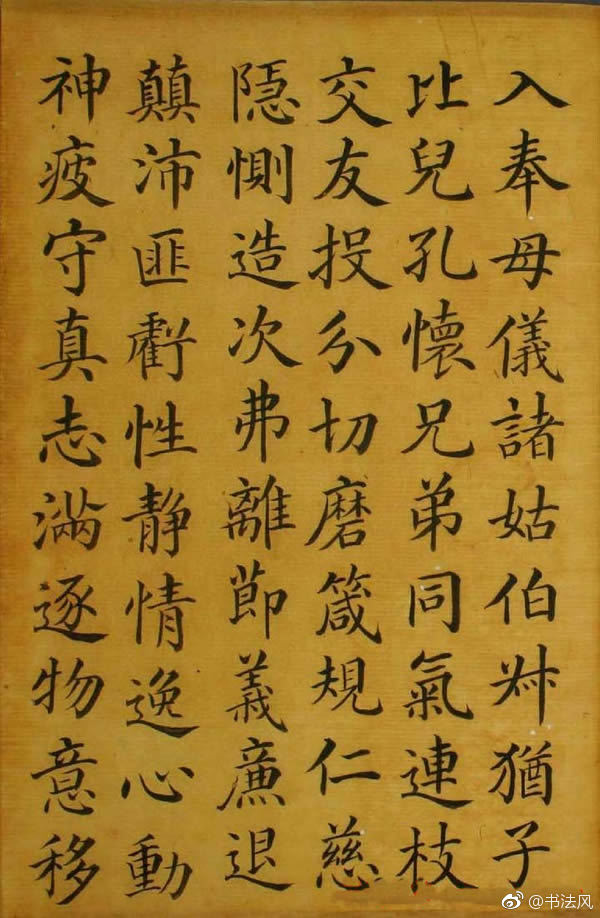 入奉母儀諸姑伯叔猶子
比兒孔懷兄弟同氣連枝
交友投分切磨箴規仁慈
隱惻造次弗離節義廉退
顛沛匪虧性静情逸心動
神疲守真志滿逐物意移
@书法风